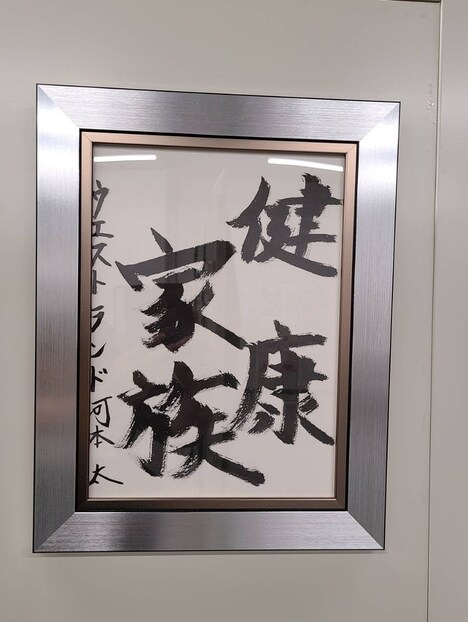 健康
家族
ウエストランド河本太